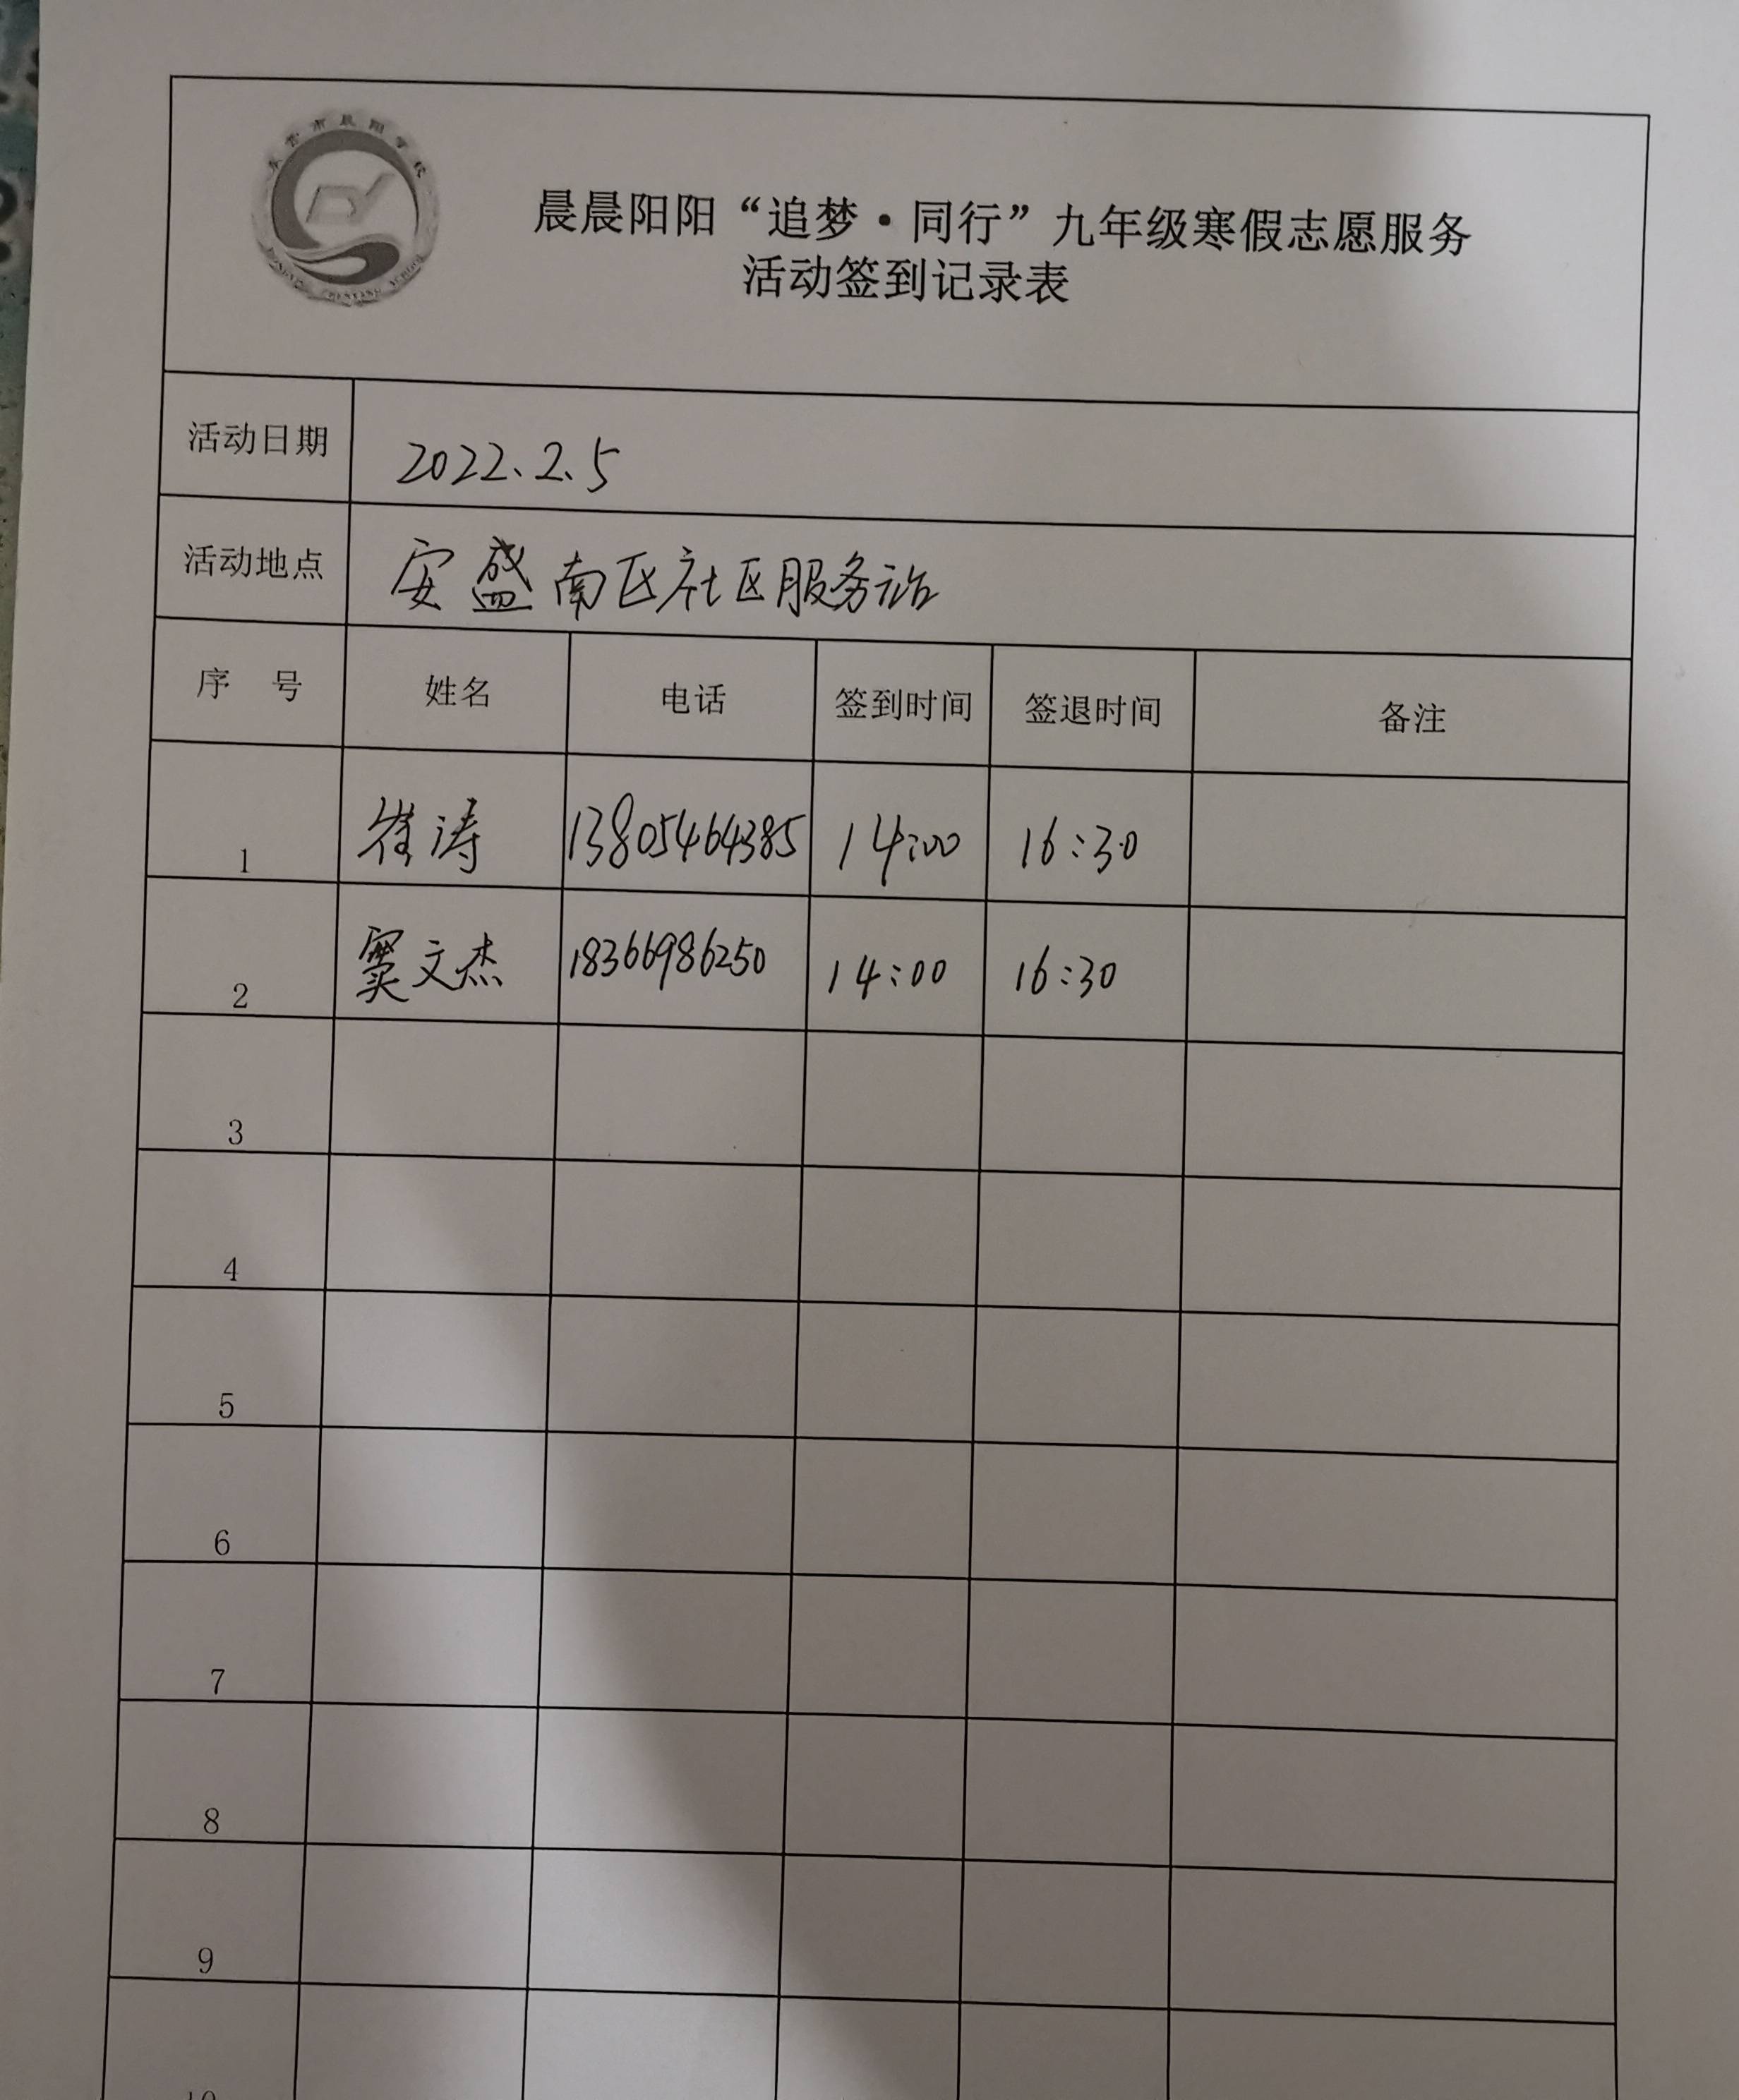 东营市晨阳学校
晨晨阳阳“追梦·同行”九年级寒假志愿服务
活动签到记录表
活动日期 2022.2.5
活动地点 安盛南区社区服务站
序 号 姓名 电话 签到时间 签退时间 备注
1 崔涛 13805464385 14:00 16:30
2 窦文杰 18366986250 14:00 16:30
3
4
5
6
7
8
9
10